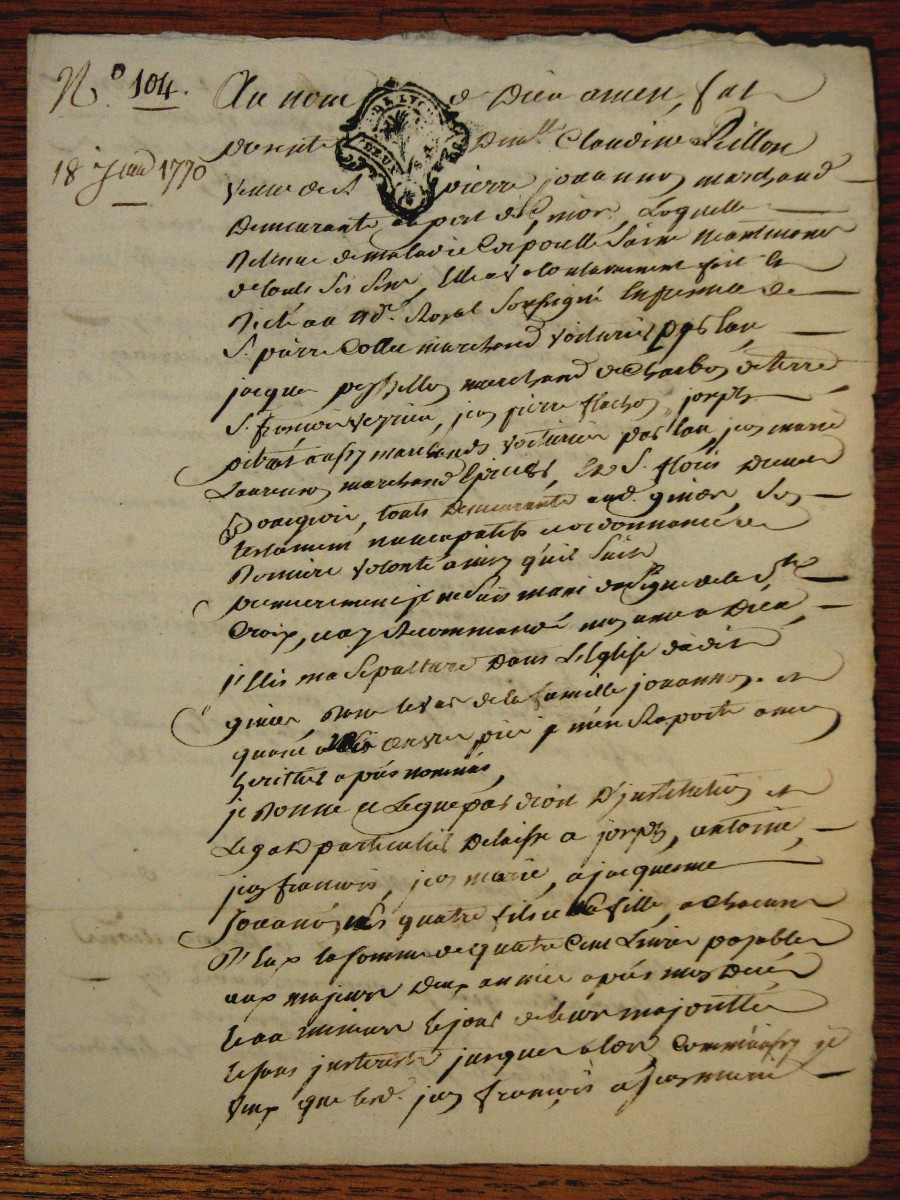 N.º 104.
18 juin 1770
DE LYON
DEUX S.
Au nom de Dieu amen, fut
presente Dem.lle Claudine Peillon
veuve de S. pierre jouannon marchand
Demeurante au port de Givior, Laquelle
Detenue de maladie Corporelle Saine neantmoins
de touts ses sens, Elle a volontairement fait le
Dicté au Royal Soussigné En presence de
S. pierre Collet marchand voiturier par Eau
jacques marchand de Charbon de terre
S. françois jean pierre flachon, joseph
aussy marchands voituriers par Eau, jean marie
Laurenson marchand Epicier, Et S. Demers
touts Demeurants aud. givors, Son
testament nuncupatif et ordonnance de
Derniere volonté ainsy qu'il suit
premierement je me suis muni du Signe de la Ste
Croix, et ay Recommandé mon ame a Dieu
j'Elis ma Sepulture Dans L'Eglise dudit
givors, Dans le vas de la famille jouannon. et
quant aux œuvres pies je m'en Raporte a mes
heritiers apres nommés,
je Donne et Legue par droit D'institution et
Legat particulier Delaisse a joseph, antoine
jean françois, jean marie, et jacquemme
Jouanon mes quatre fils et fille, a Chacun
D'Eux la somme de quatre Cent Livres payables
aux majeurs Deux années après mon Decés
Et aux mineurs le jour de leur majorité
Et sans interests jusques alors Comme aussy je
veux que lesd. jean françois et jean marie